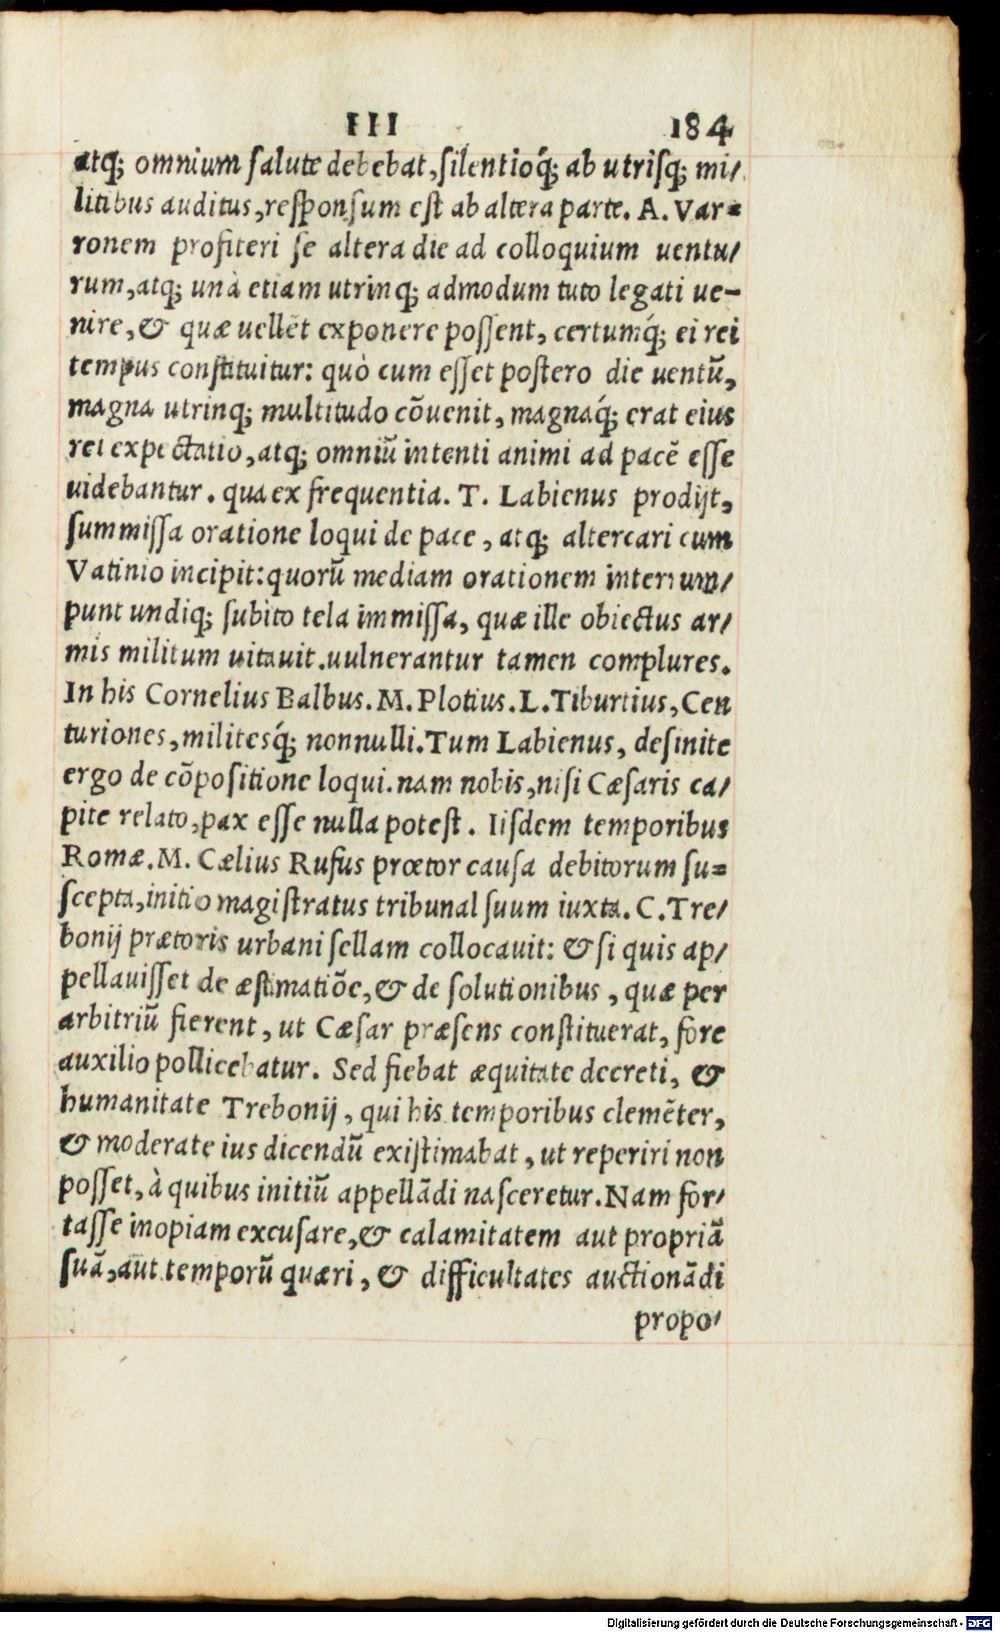 III 184
atq; omnium ſalute debebat, ſilentioq́; ab utriſq; mi/
litibus auditus, reſponſum eſt ab altera parte. A. Var=
ronem profiteri ſe altera die ad colloquium uentu/
rum, atq; unà etiam utrinq; admodum tuto legati ue-
nire, & quæ uellēt exponere poſſent, certumq́; ei rei
tempus conſtituitur: quò cum eſſet poſtero die uentū,
magna utrinq; multitudo cōuenit, magnaq́; erat eius
rei expectatio, atq; omniū intenti animi ad pacē eſſe
uidebantur. qua ex frequentia. T. Labienus prodijt,
ſummiſſa oratione loqui de pace, atq; altercari cum
Vatinio incipit: quorū mediam orationem interrum/
punt undiq; ſubito tela immiſſa, quæ ille obiectus ar/
mis militum uitauit. uulnerantur tamen complures.
In his Cornelius Balbus. M. Plotius. L. Tiburtius, Cen
turiones, militesq́; nonnulli. Tum Labienus, deſinite
ergo de cōpoſitione loqui. nam nobis, niſi Cæſaris ca/
pite relato, pax eſſe nulla poteſt. Iiſdem temporibus
Romæ. M. Cælius Rufus prœtor cauſa debitorum ſu=
ſcepta, initio magiſtratus tribunal ſuum iuxta. C. Tre/
bonij prætoris urbani ſellam collocauit: & ſi quis ap/
pellauiſſet de æſtimatiōe, & de ſolutionibus, quæ per
arbitriū fierent, ut Cæſar præſens conſtituerat, fore
auxilio pollicebatur. Sed fiebat æquitate decreti, &
humanitate Trebonij, qui his temporibus clemēter,
& moderate ius dicendū exiſtimabat, ut reperiri non
poſſet, à quibus initiū appellādi naſceretur. Nam for/
taſſe inopiam excuſare, & calamitatem aut propriā
ſuā, aut temporū quæri, & difficultates auctionādi
propo/
Digitalisierung gefördert durch die Deutsche Forschungsgemeinschaft - DFG